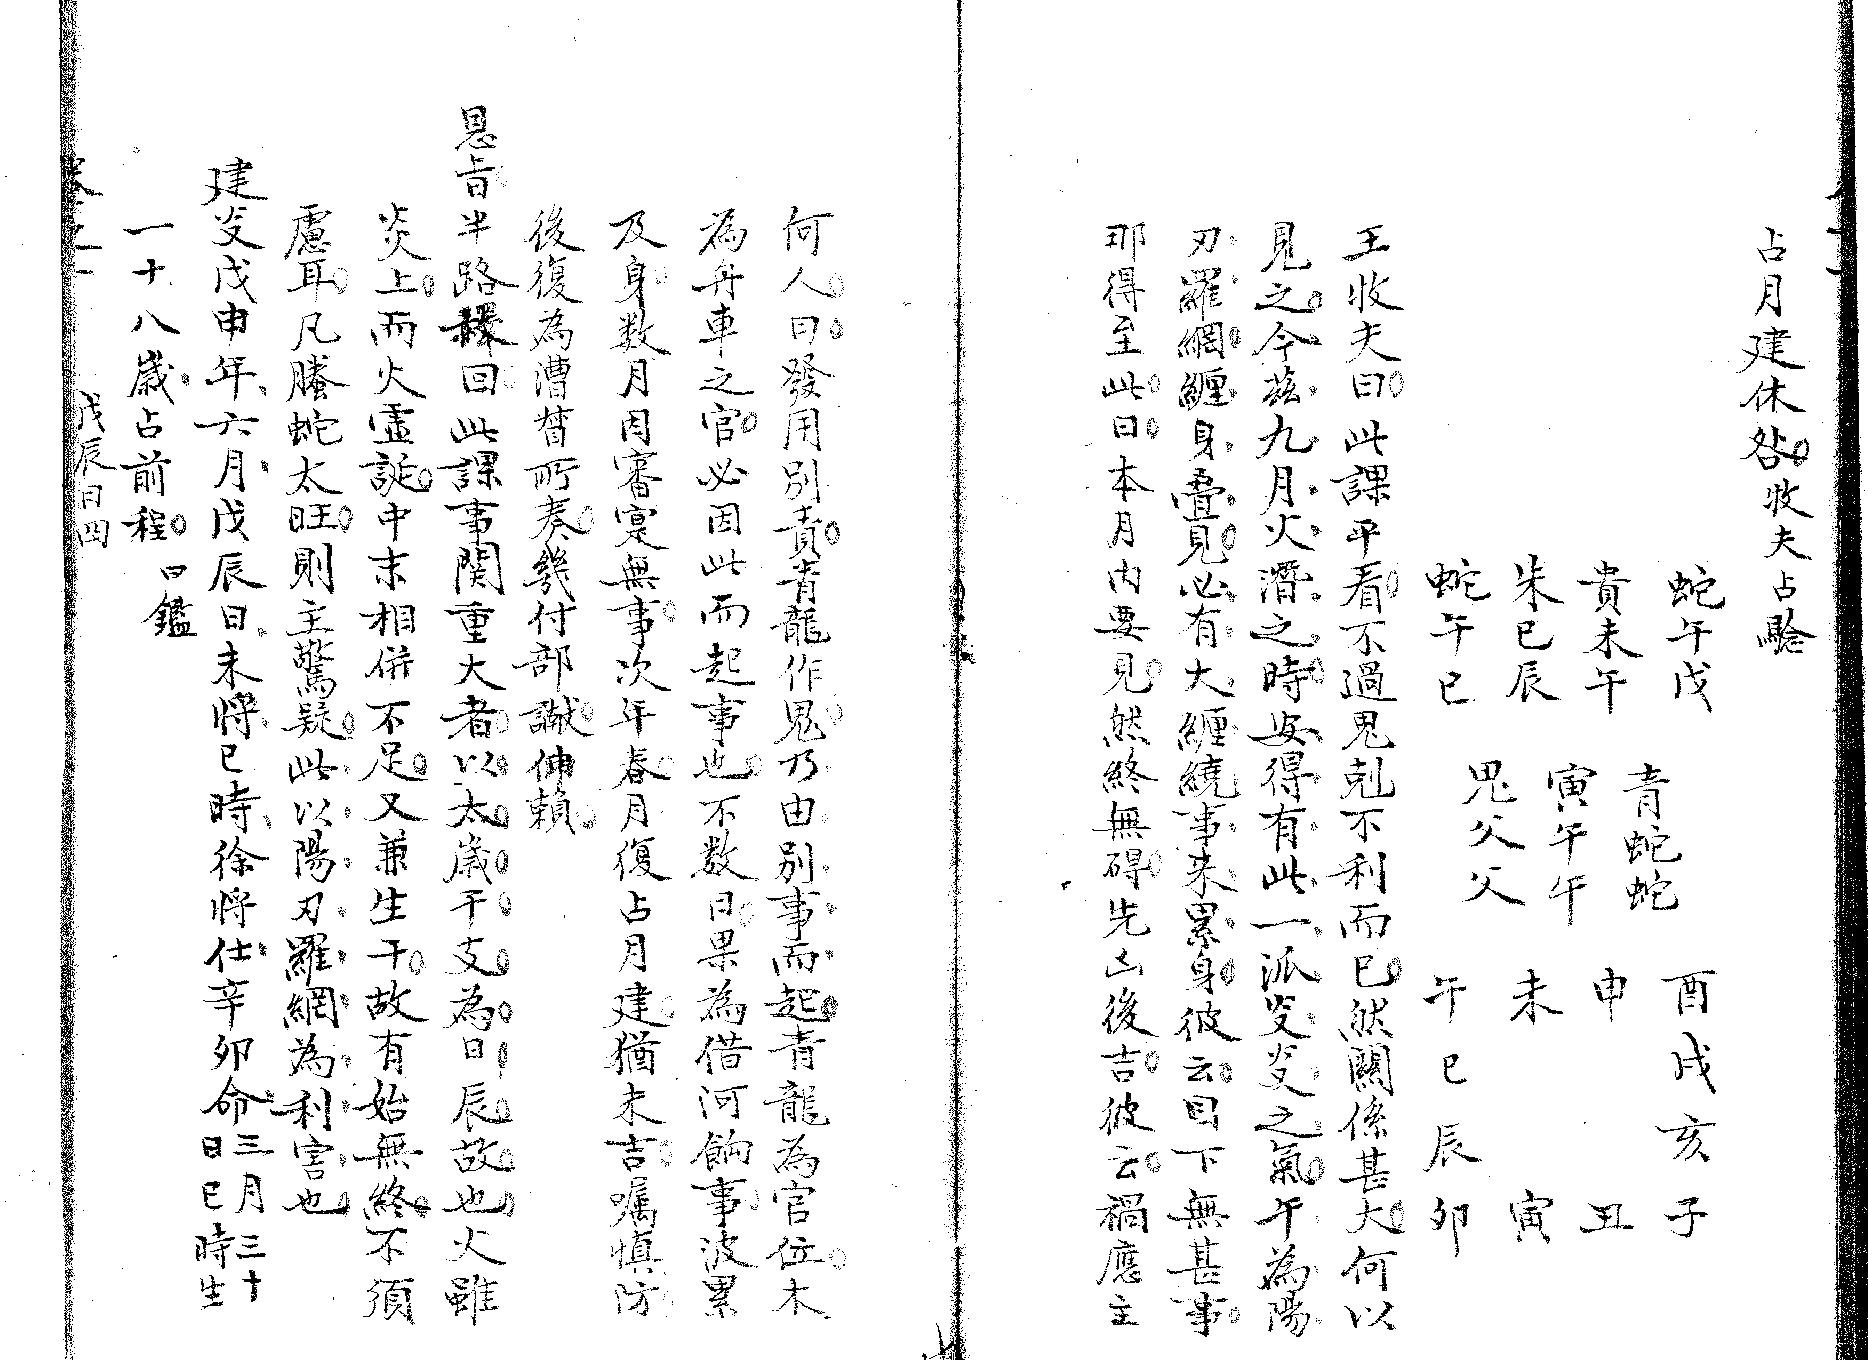 占月建休咎收夫占驗
蛇午戊　青蛇蛇　酉戌亥子
貴未午　寅午午　申　丑
朱巳辰　鬼父父　未　寅
蛇午巳　午巳辰卯
王收夫曰此課平看不過鬼剋不利而已然關係甚大何以
見之今茲九月火潛之時安得有此一派炎炎之氣午為陽
刃羅網纏身疊見必有大纏繞事来累身彼云目下無甚事
那得至此曰本月内要見然終無碍先凶後吉彼云禍應主
何人曰發用别責青龍作鬼乃由别事而起青龍為官位木
為舟車之官必因此而起事也不数日果為借河餉事波累
及身数月因審寔無事次年春月復占月建猶未吉嘱慎防
後復為漕督所奏幾付部讞伸賴
恩旨半路釋回此課事関重大者以太歲干支為日辰故也火雖
炎上而火虚誕中末相併不足又兼生干故有始無終不須
慮耳凡螣蛇太旺則主驚疑此以陽刃羅網為利害也
建炎戊申年六月戊辰日未將巳時徐將仕辛卯命三月三十日巳時生
一十八歲占前程 口鑑
戊辰日四